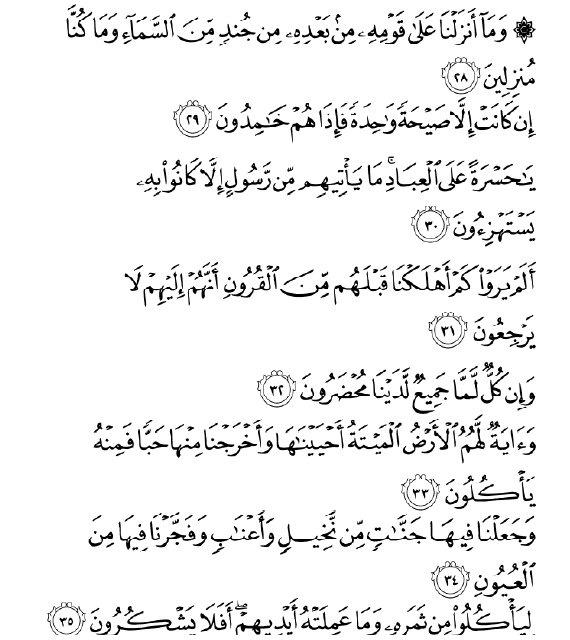 ۞ وَمَآ أَنزَلْنَا عَلَىٰ قَوْمِهِۦ مِنۢ بَعْدِهِۦ مِن جُندٍ مِّنَ ٱلسَّمَآءِ وَمَا كُنَّا
مُنزِلِينَ ٢٨
إِن كَانَتْ إِلَّا صَيْحَةً وَٰحِدَةً فَإِذَا هُمْ خَـٰمِدُونَ ٢٩
يَـٰحَسْرَةً عَلَى ٱلْعِبَادِ ۚ مَا يَأْتِيهِم مِّن رَّسُولٍ إِلَّا كَانُوا۟ بِهِۦ
يَسْتَهْزِءُونَ ٣٠
أَلَمْ يَرَوْا۟ كَمْ أَهْلَكْنَا قَبْلَهُم مِّنَ ٱلْقُرُونِ أَنَّهُمْ إِلَيْهِمْ لَا
يَرْجِعُونَ ٣١
وَإِن كُلٌّ لَّمَّا جَمِيعٌ لَّدَيْنَا مُحْضَرُونَ ٣٢
وَءَايَةٌ لَّهُمُ ٱلْأَرْضُ ٱلْمَيْتَةُ أَحْيَيْنَـٰهَا وَأَخْرَجْنَا مِنْهَا حَبًّا فَمِنْهُ
يَأْكُلُونَ ٣٣
وَجَعَلْنَا فِيهَا جَنَّـٰتٍ مِّن نَّخِيلٍ وَأَعْنَـٰبٍ وَفَجَّرْنَا فِيهَا مِنَ
ٱلْعُيُونِ ٣٤
لِيَأْكُلُوا۟ مِن ثَمَرِهِۦ وَمَا عَمِلَتْهُ أَيْدِيهِمْ ۖ أَفَلَا يَشْكُرُونَ ٣٥